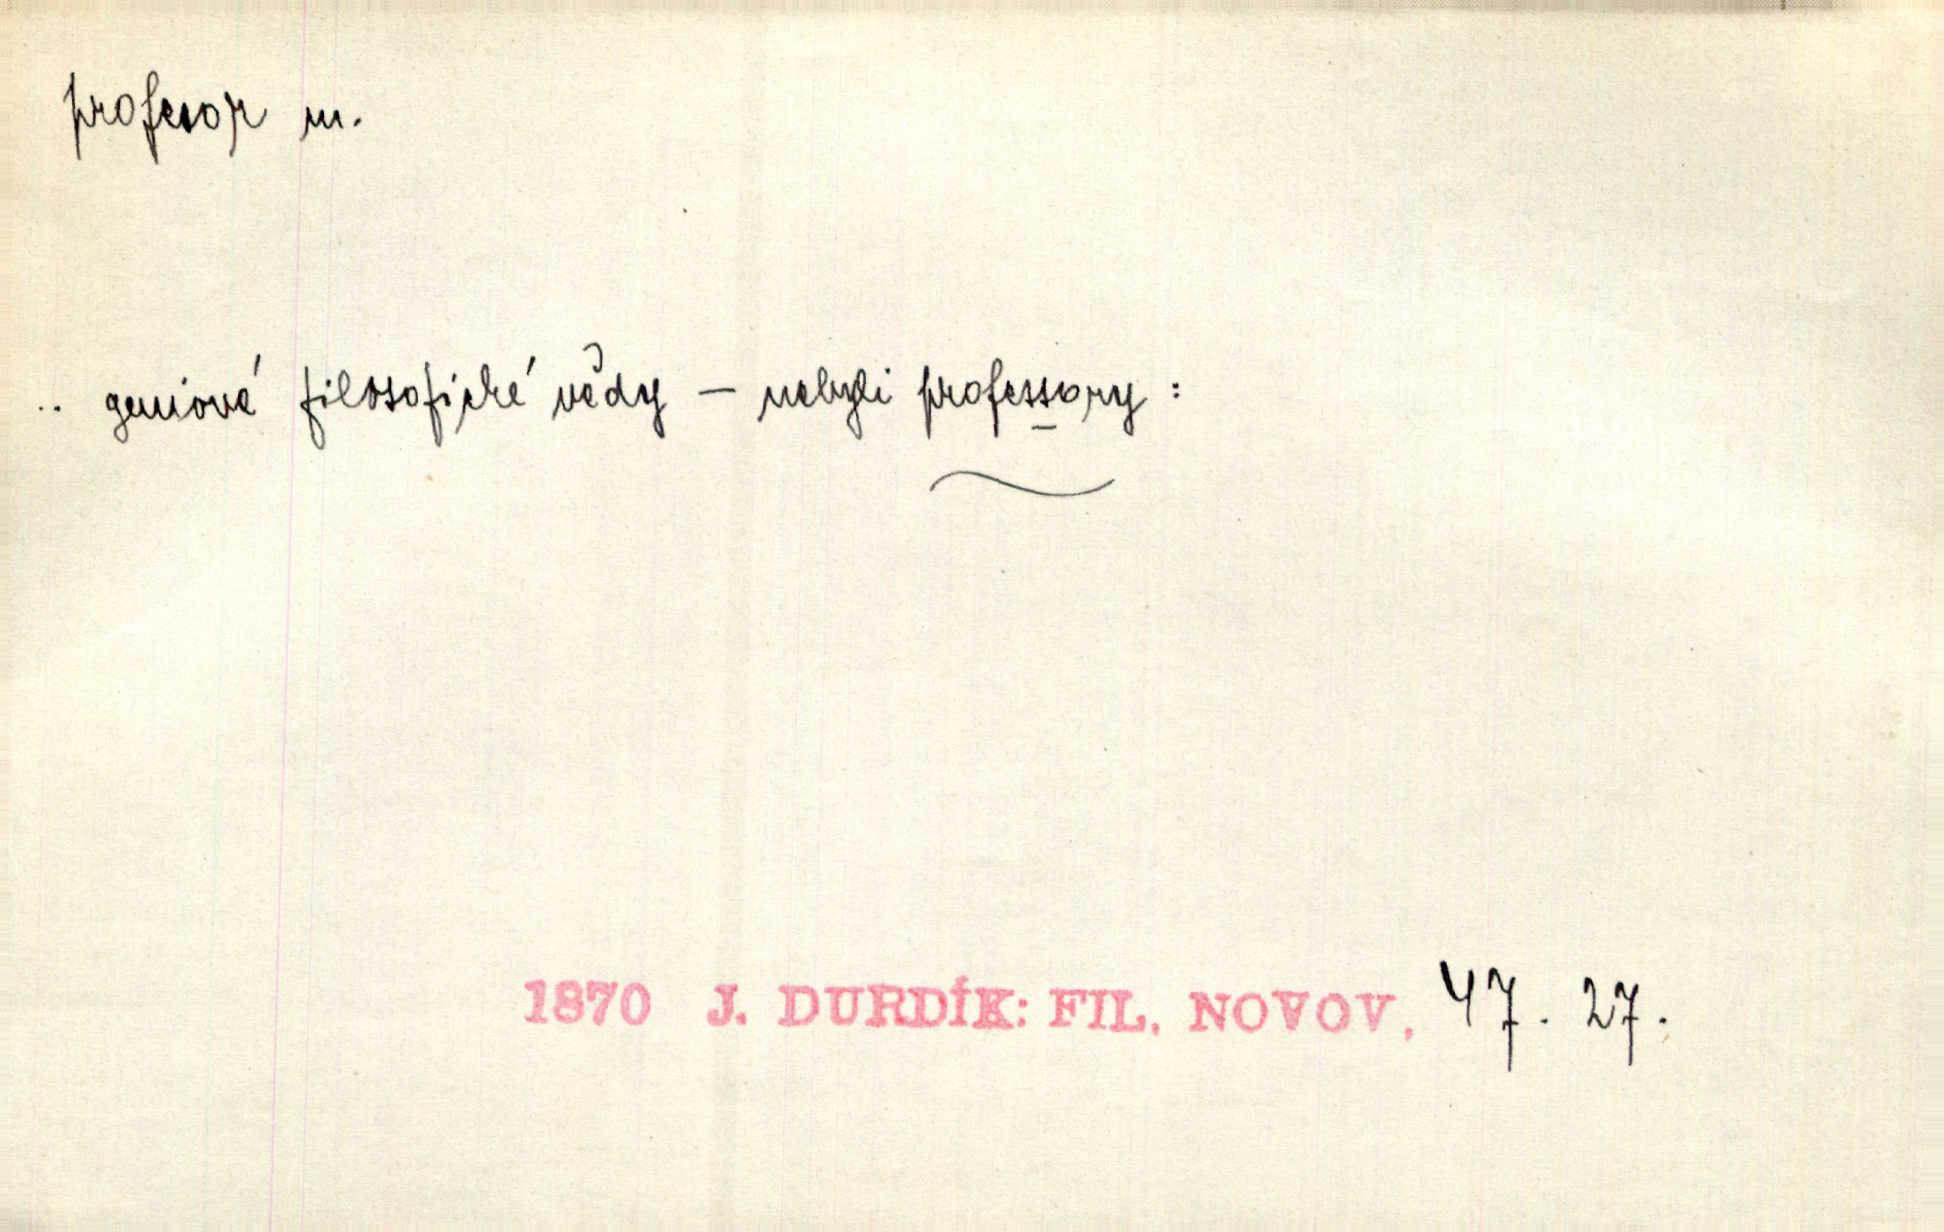 profesor m.
.. geniové filosofické vědy — nebyli professory :
1870 J. DURDÍK: FIL. NOVOV. 47. 27.